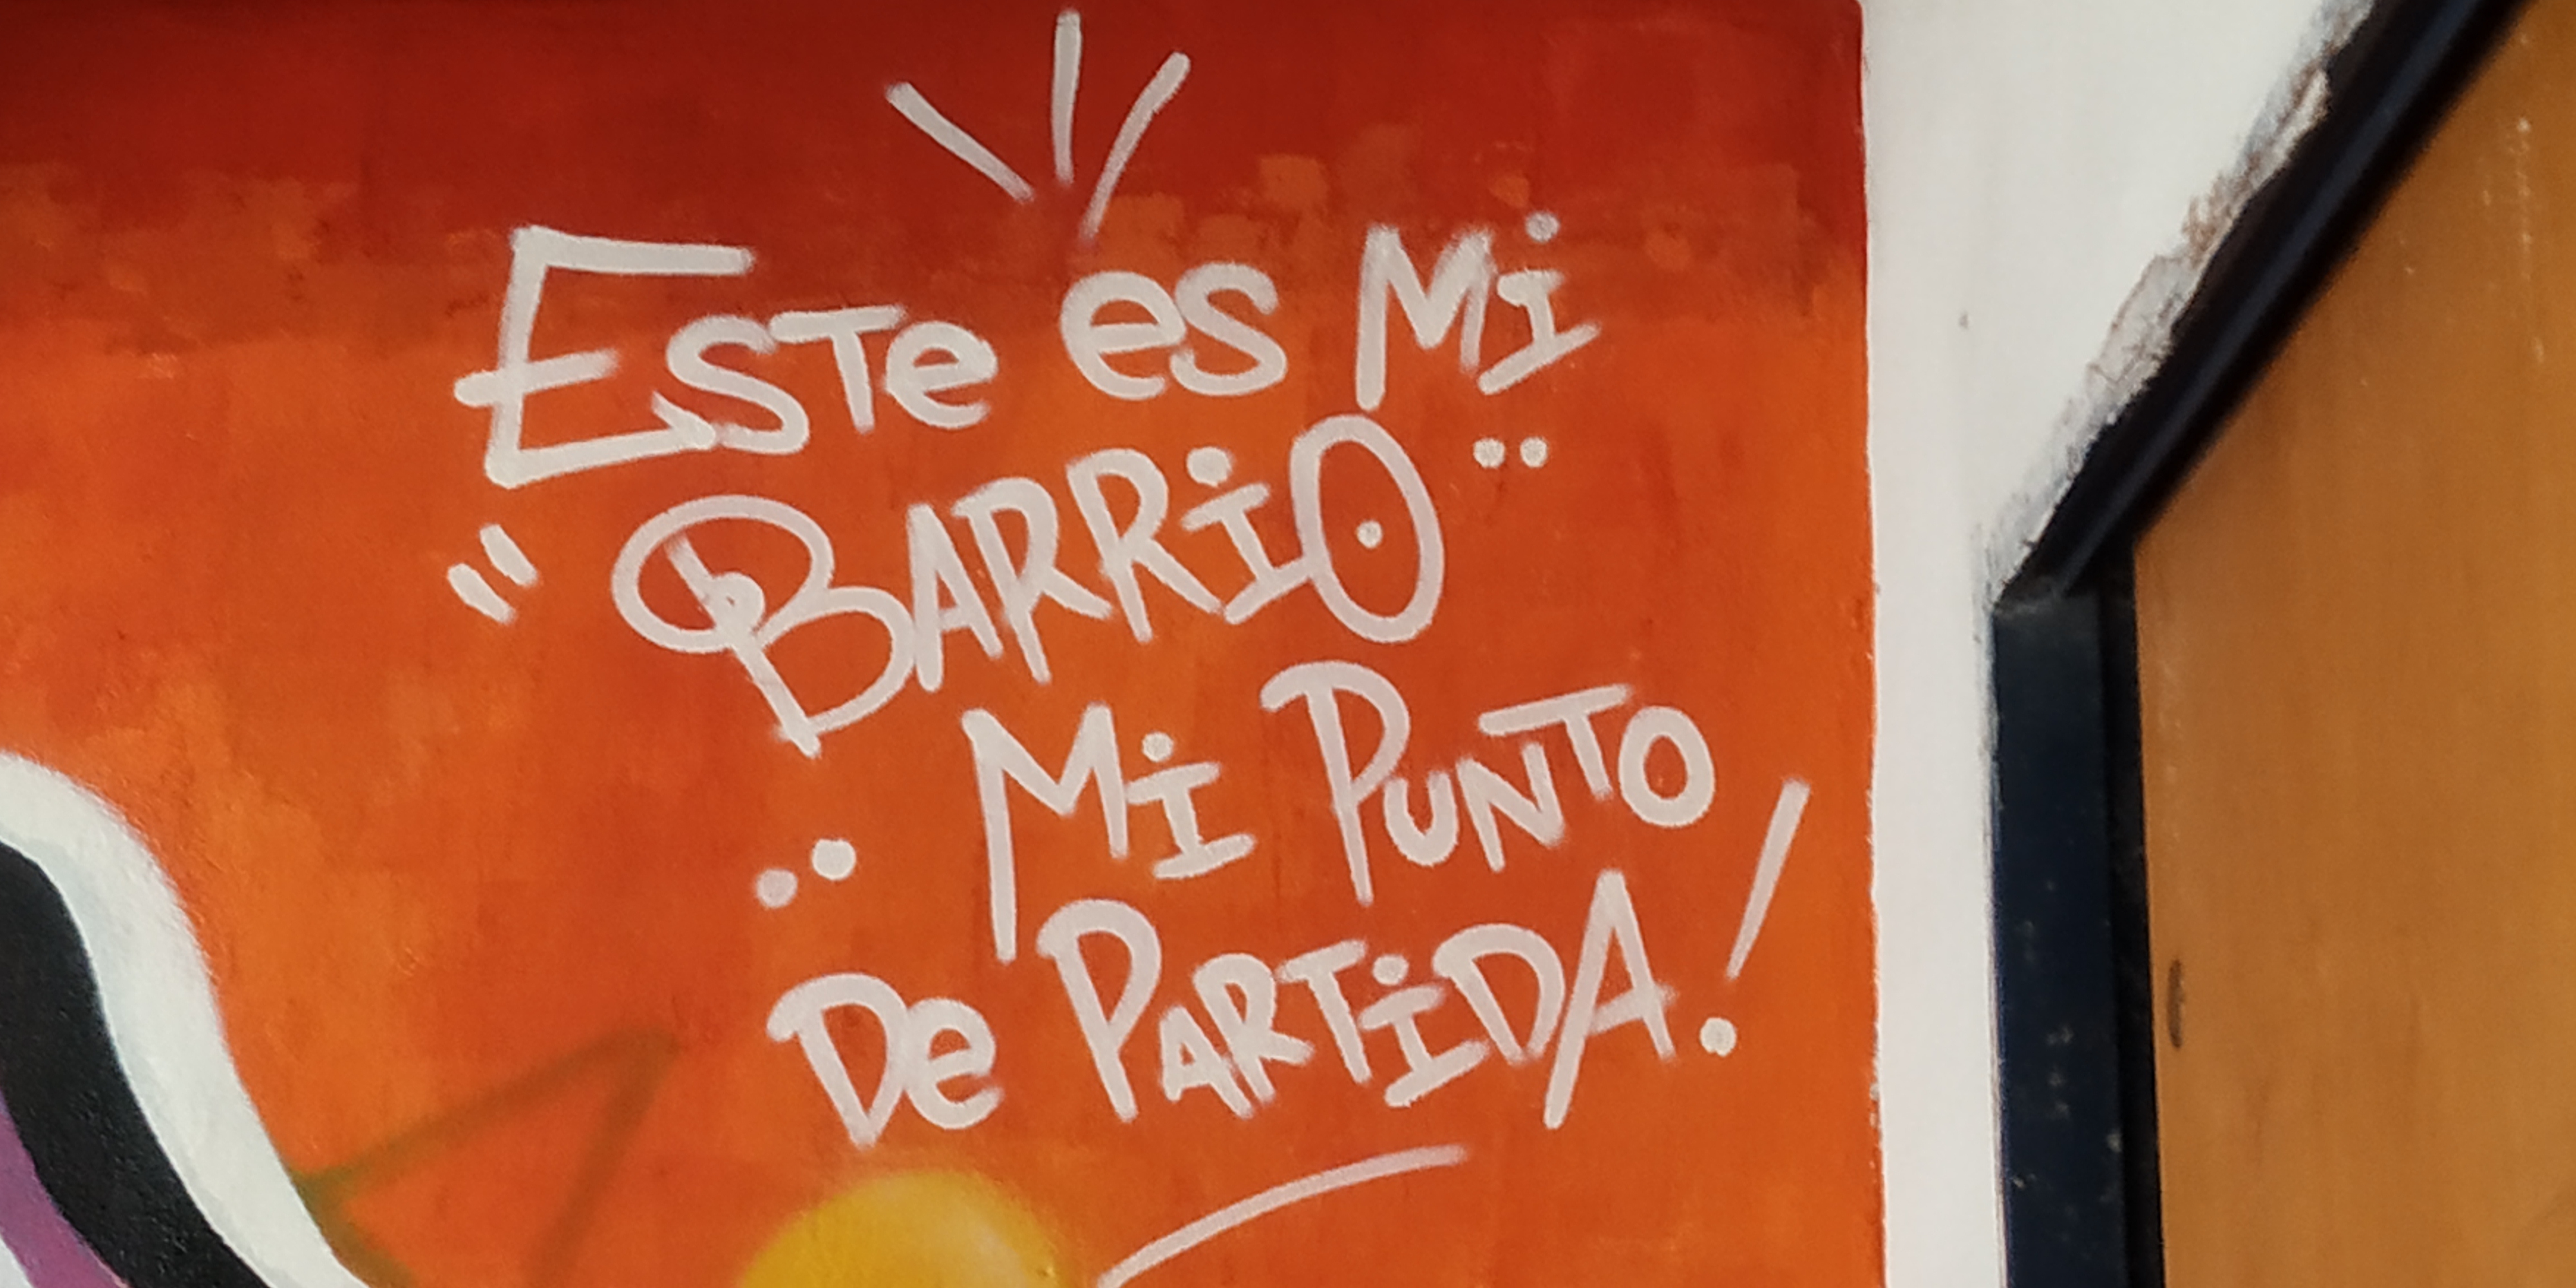 Este es Mi
BARRiO
Mi PUNTO
De PARTiDA!